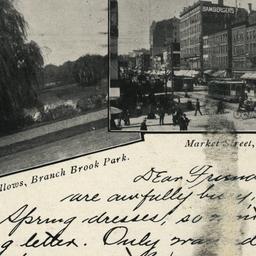 BAMBERGER'S
llows, Branch Brook Park.
Market Street,
Dear Friend
are awfully busy,
Spring dresses, so
g letter. Only